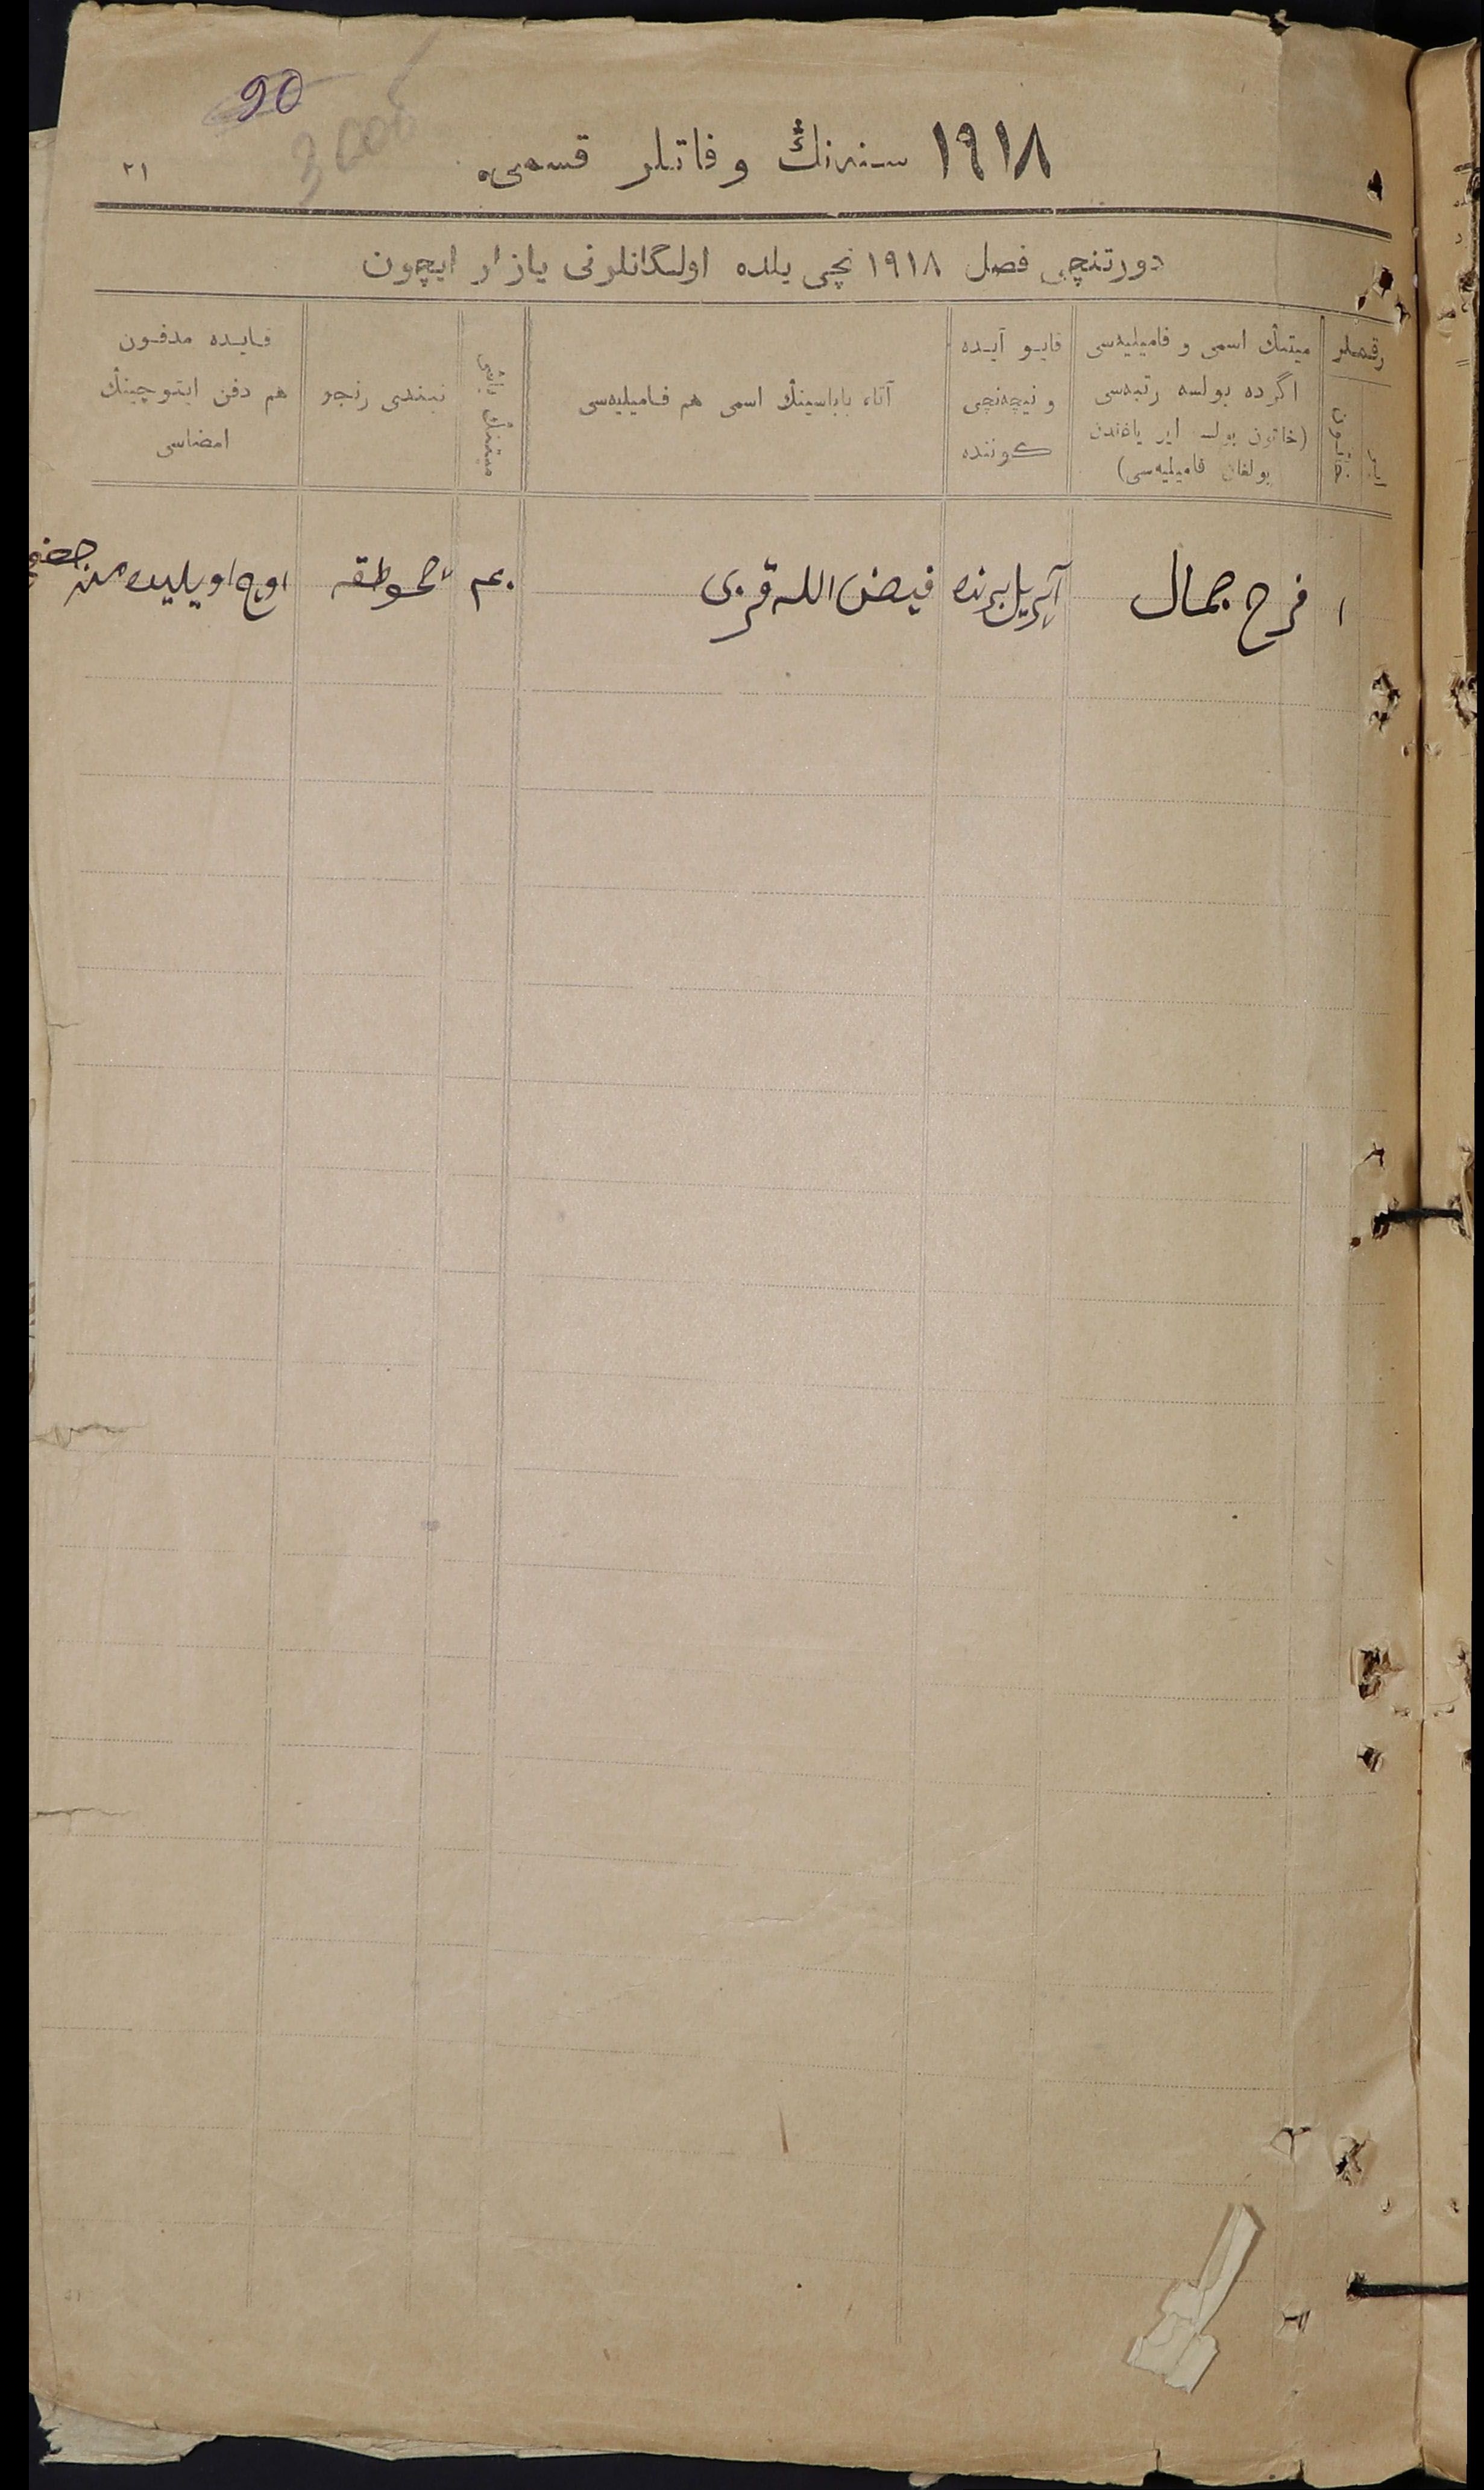 90
٢١
١٩١٨ سنه‌نڭ وفاتلر قسمی.
دورتنچی فصل ١٩١٨ نچی یلده اولگانلرنی یازار ایچون
رقملر
ایر
خاتون
میتنڭ اسمی و فامیلیه‌سی
اگرده بولسه رتبه‌سی
(خاتون بولسه ایر یاغندن
بولغان فامیلیه‌سی)
قایو آیده
و نیچه‌نچی
كوننده
آتا، باباسینڭ اسمی هم فامیلیه‌سی
میتنڭ یاشی
نیندی رنجو
قایده مدفون
هم دفن ایتوچینڭ
امضاسی
١ فرح جمال آپریل برنده فیض الله قزی